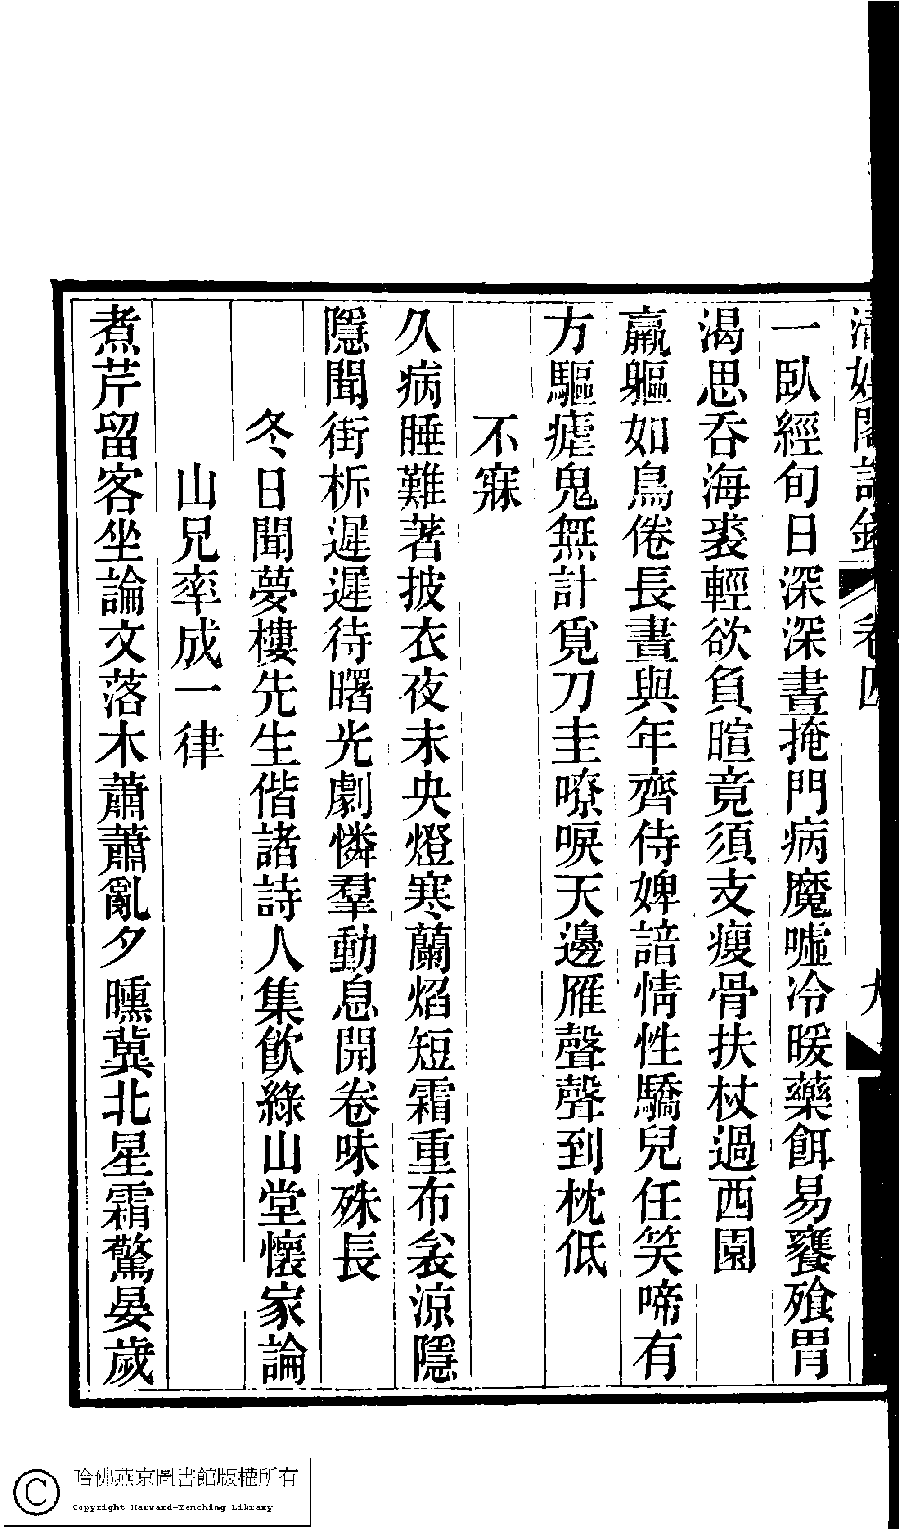 一臥經旬日深深晝掩門病魔噓冷暖藥餌易饔飱胃
渴思吞海裘輕欲負暄竟須支瘦骨扶杖過西園
羸軀如鳥倦長晝與年齊侍婢諳情性驕兒任笑啼有
方驅瘧鬼無計覓刀圭嘹唳天邊雁聲聲到枕低
不寐
久病睡難著披衣夜未央燈寒蘭焰短霜重布衾涼隱
隱聞街柝遲遲待曙光劇憐羣動息開卷味殊長
冬日聞夢樓先生偕諸詩人集飲綠山堂懷家論
山兄率成一律
煮芹留客坐論文落木蕭蕭亂夕曛冀北星霜驚晏歲
哈佛燕京圖書館版權所有
Copyright Harvard-Yenching Library